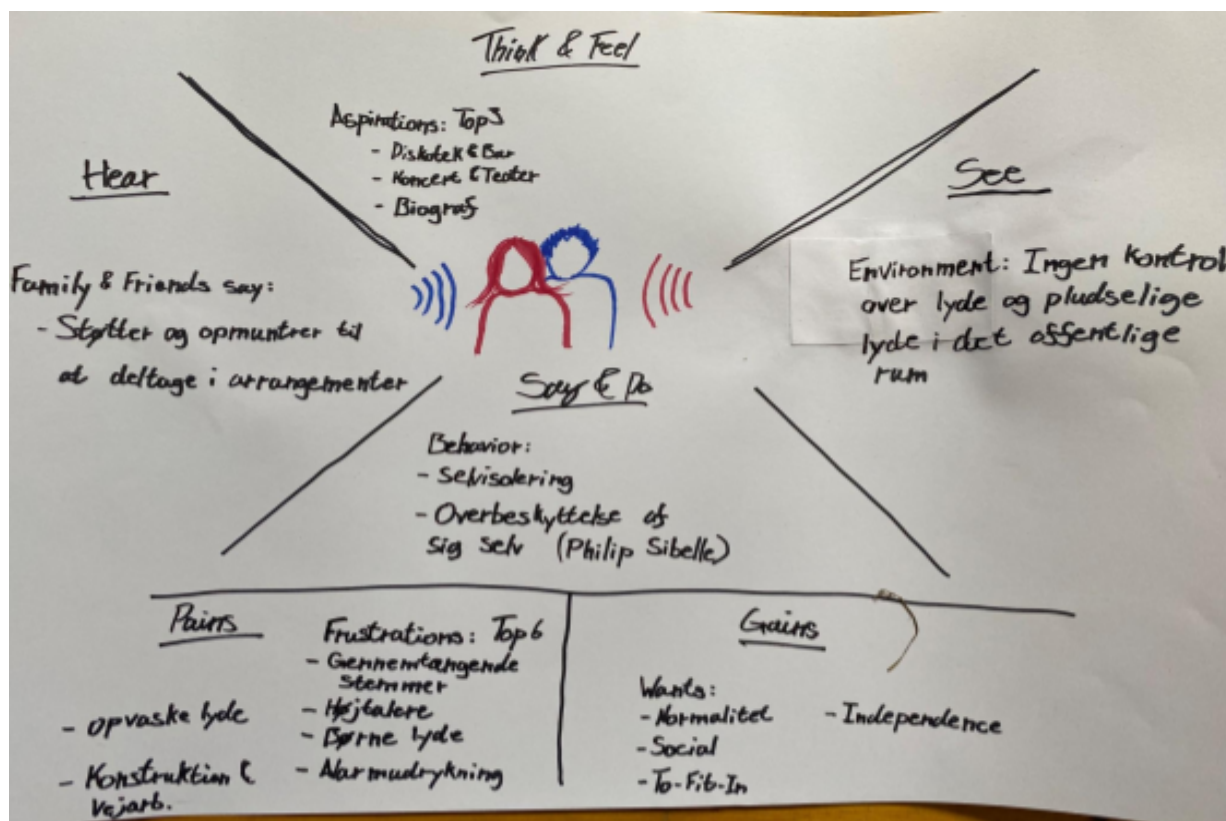 Think & Feel
Aspirations: Top3
- Diskotek & Bar
- Koncert & Teater
- Biograf
Hear
Family & Friends say:
- Støtter og opmuntrer til
at deltage i arrangementer
See
Environment: Ingen kontrol
over lyde og pludselige
lyde i det offentlige
rum
Say & Do
Behavior:
- Selvisolering
- Overbeskyttelse af
sig selv (Philip Sibelle)
Pains
- opvaske lyde
- Konstruktion &
Vejarb.
Frustrations: Top 6
- Gennemtængende
stemmer
- Højtalere
- Børne lyde
- Alarmudrykning
Gains
Wants:
- Normalitet
- Social
- To-Fit-In
- Independence